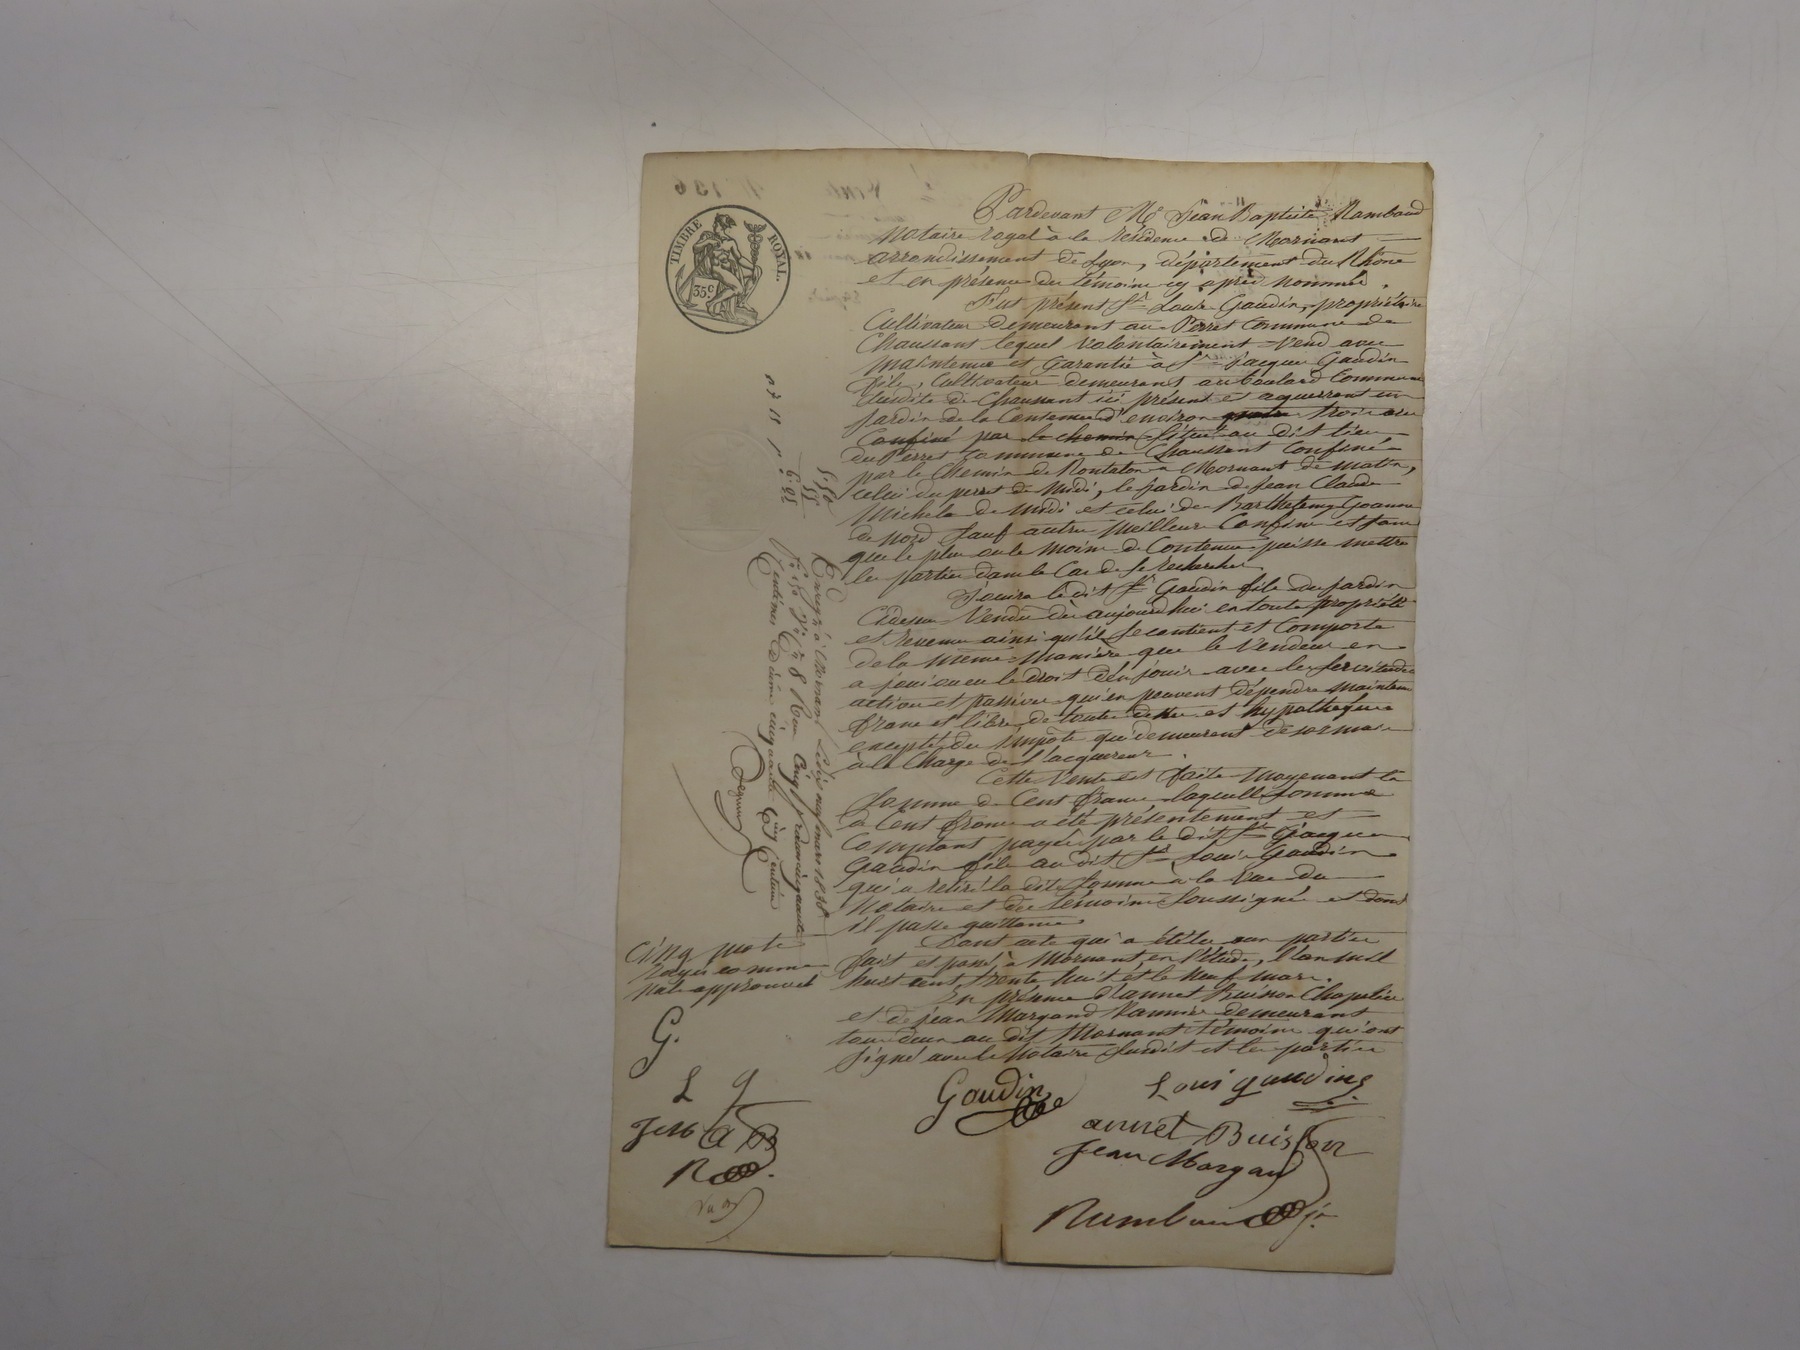 TIMBRE ROYAL.
35c
Pardevant Me Jean Baptiste Rambaud
Notaire royal à la résidence de Mornant
arrondissement de Lyon, département du Rhône
et en présence des témoins cy après nommés.
Fut présent Sr Louis Gaudin, propriétaire
Cultivateur demeurant au Perret Commune de
Chaussant lequel volontairement vend avec
maintenue et Garantie à Sr Jacques Gaudin
fils, Cultivateur demeurant au boulard Commune
susdite de Chaussant ici présent et aquerrant un
jardin de la Contenue d'environ trois ares
Confiné par le chemin situé au dit lieu
du Perret Commune de Chaussant Confiné
par le Chemin de Rontalon à Mornant de matin,
celui du perret de midi, le jardin de Jean Claude
Michels de midi et celui de Barthelemy
de nord sauf autres meilleurs Confins et sans
que le plus ou le moins de Contenue puisse mettre
les parties dans le Cas de se rechercher.
Jouira le dit Sr Gaudin fils du jardin
Cidessus Vendu dès aujourd'hui en toute propriété
et revenus ainsi qu'il se contient et Comporte
de la même manière que le Vendeur en
a joui ou eu le droit d'en jouir avec les servitudes
actives et passives qu'en peuvent dépendre maintenu
franc et libre de toutes dettes et hypothèques
excepté des impôts qu'demeurent desormais
à la Charge de l'acquereur.
Cette Vente est faite moyenant la
somme de Cent francs laquelle somme
de Cent francs a été présentement et
Comptant payée par le dit Sr Jacques
Gaudin fils au dit Sr Louis Gaudin
qui a retiré la dite somme à la vue du
Notaire et des témoins soussignés et dont
il passe quittance
Dont acte qui a été lu aux parties
fait et passé à Mornant en l'étude, l'an mil
huit cent trente huit et le neuf mars.
En présence d'annet Buisson Chapelier
et de jean Margand Vannier demeurant
tous deux au dit Mornant témoins qu'ont
signé avec le Notaire susdit et les parties
5,50
55
6,05
Enregtré à Mornant le dix neuf mars 1838
fo 150 Vo Co 8 Reçu Cinq francs cinquante
Centimes Décime cinquante Cinq Centimes
Cinq mots
rayés comme
nuls approuvés
G.
L g
A B
R
Gaudin
Louis gaudin
annet Buisson
Jean Margand
Rambaud